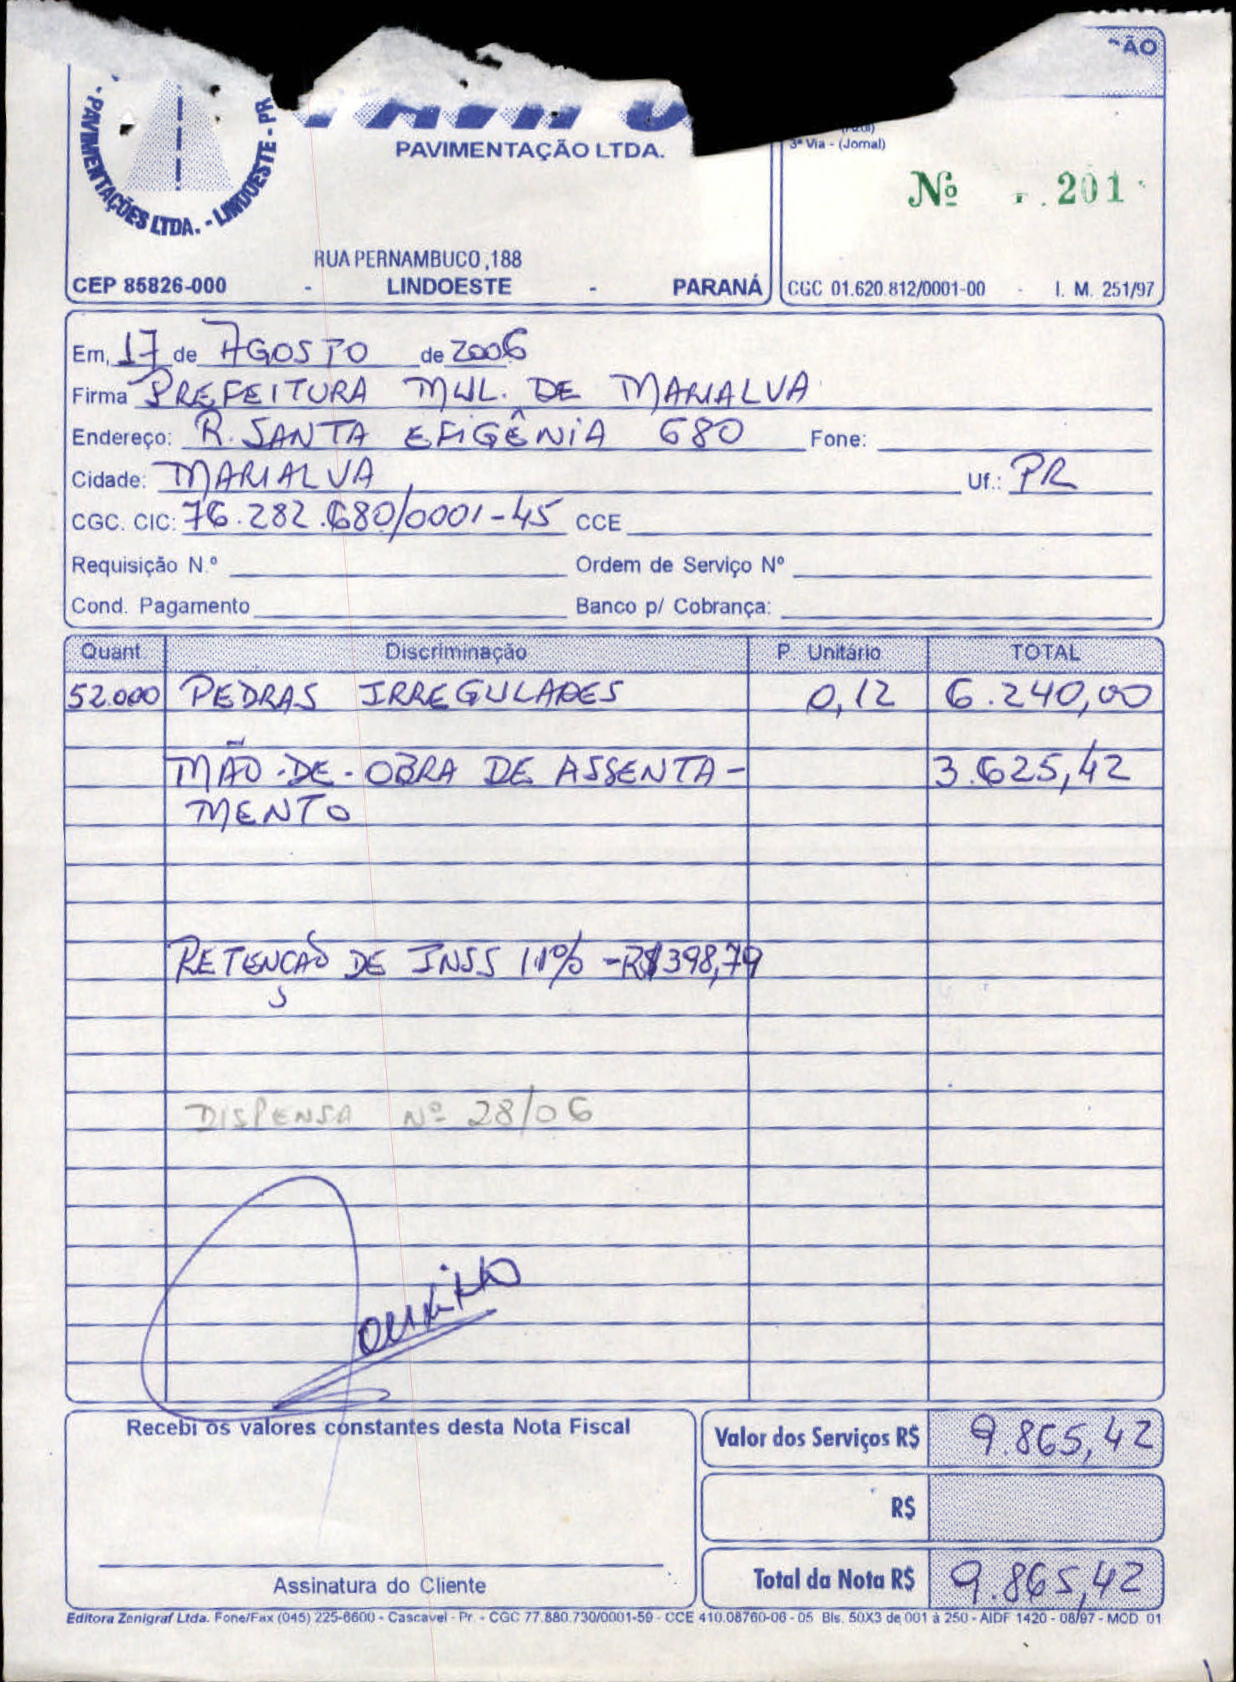 ÃO
PAVIMENTAÇÕES LTDA. - LINDOESTE - PR
PAVIMENTAÇÃO LTDA.
3ª Via - (Jornal)
Nº 201
RUA PERNAMBUCO,188
CEP 85826-000 - LINDOESTE - PARANÁ
CGC 01.620.812/0001-00 - I. M. 251/97
Em, 17 de AGOSTO de 2006
Firma PREFEITURA MUL. DE MARIALVA
Endereço: R. SANTA EFIGÊNIA 680 Fone:
Cidade: MARIALVA Uf.: PR
CGC. CIC: 76.282.680/0001-45 CCE
Requisição N.º Ordem de Serviço Nº
Cond. Pagamento Banco p/ Cobrança:
Quant. Discriminação P. Unitário TOTAL
52.000 PEDRAS IRREGULARES 0,12 6.240,00
MÃO-DE-OBRA DE ASSENTA- 3.625,42
MENTO
RETENÇÃO DE INSS 11% -R$398,79
DISPENSA Nº 28/06
Recebi os valores constantes desta Nota Fiscal
Valor dos Serviços R$ 9.865,42
R$
Assinatura do Cliente
Total da Nota R$ 9.865,42
Editora Zenigraf Ltda. Fone/Fax (045) 225-6600 - Cascavel - Pr. - CGC 77.880.730/0001-59 - CCE 410.08760-06 - 05 Bls. 50X3 de 001 à 250 - AIDF 1420 - 08/97 - MOD 01